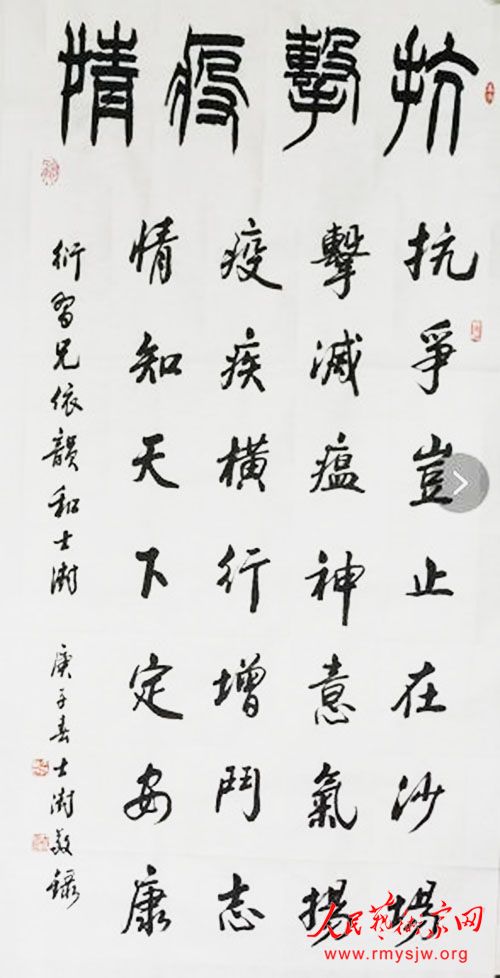 抗擊疫情
抗爭豈止在沙場
擊滅瘟神意氣揚
疫疾橫行增鬥志
情知天下定安康
衍習兄依韻和士澍
庚子春士澍敬錄
人民艺术家网
www.rmysjw.org